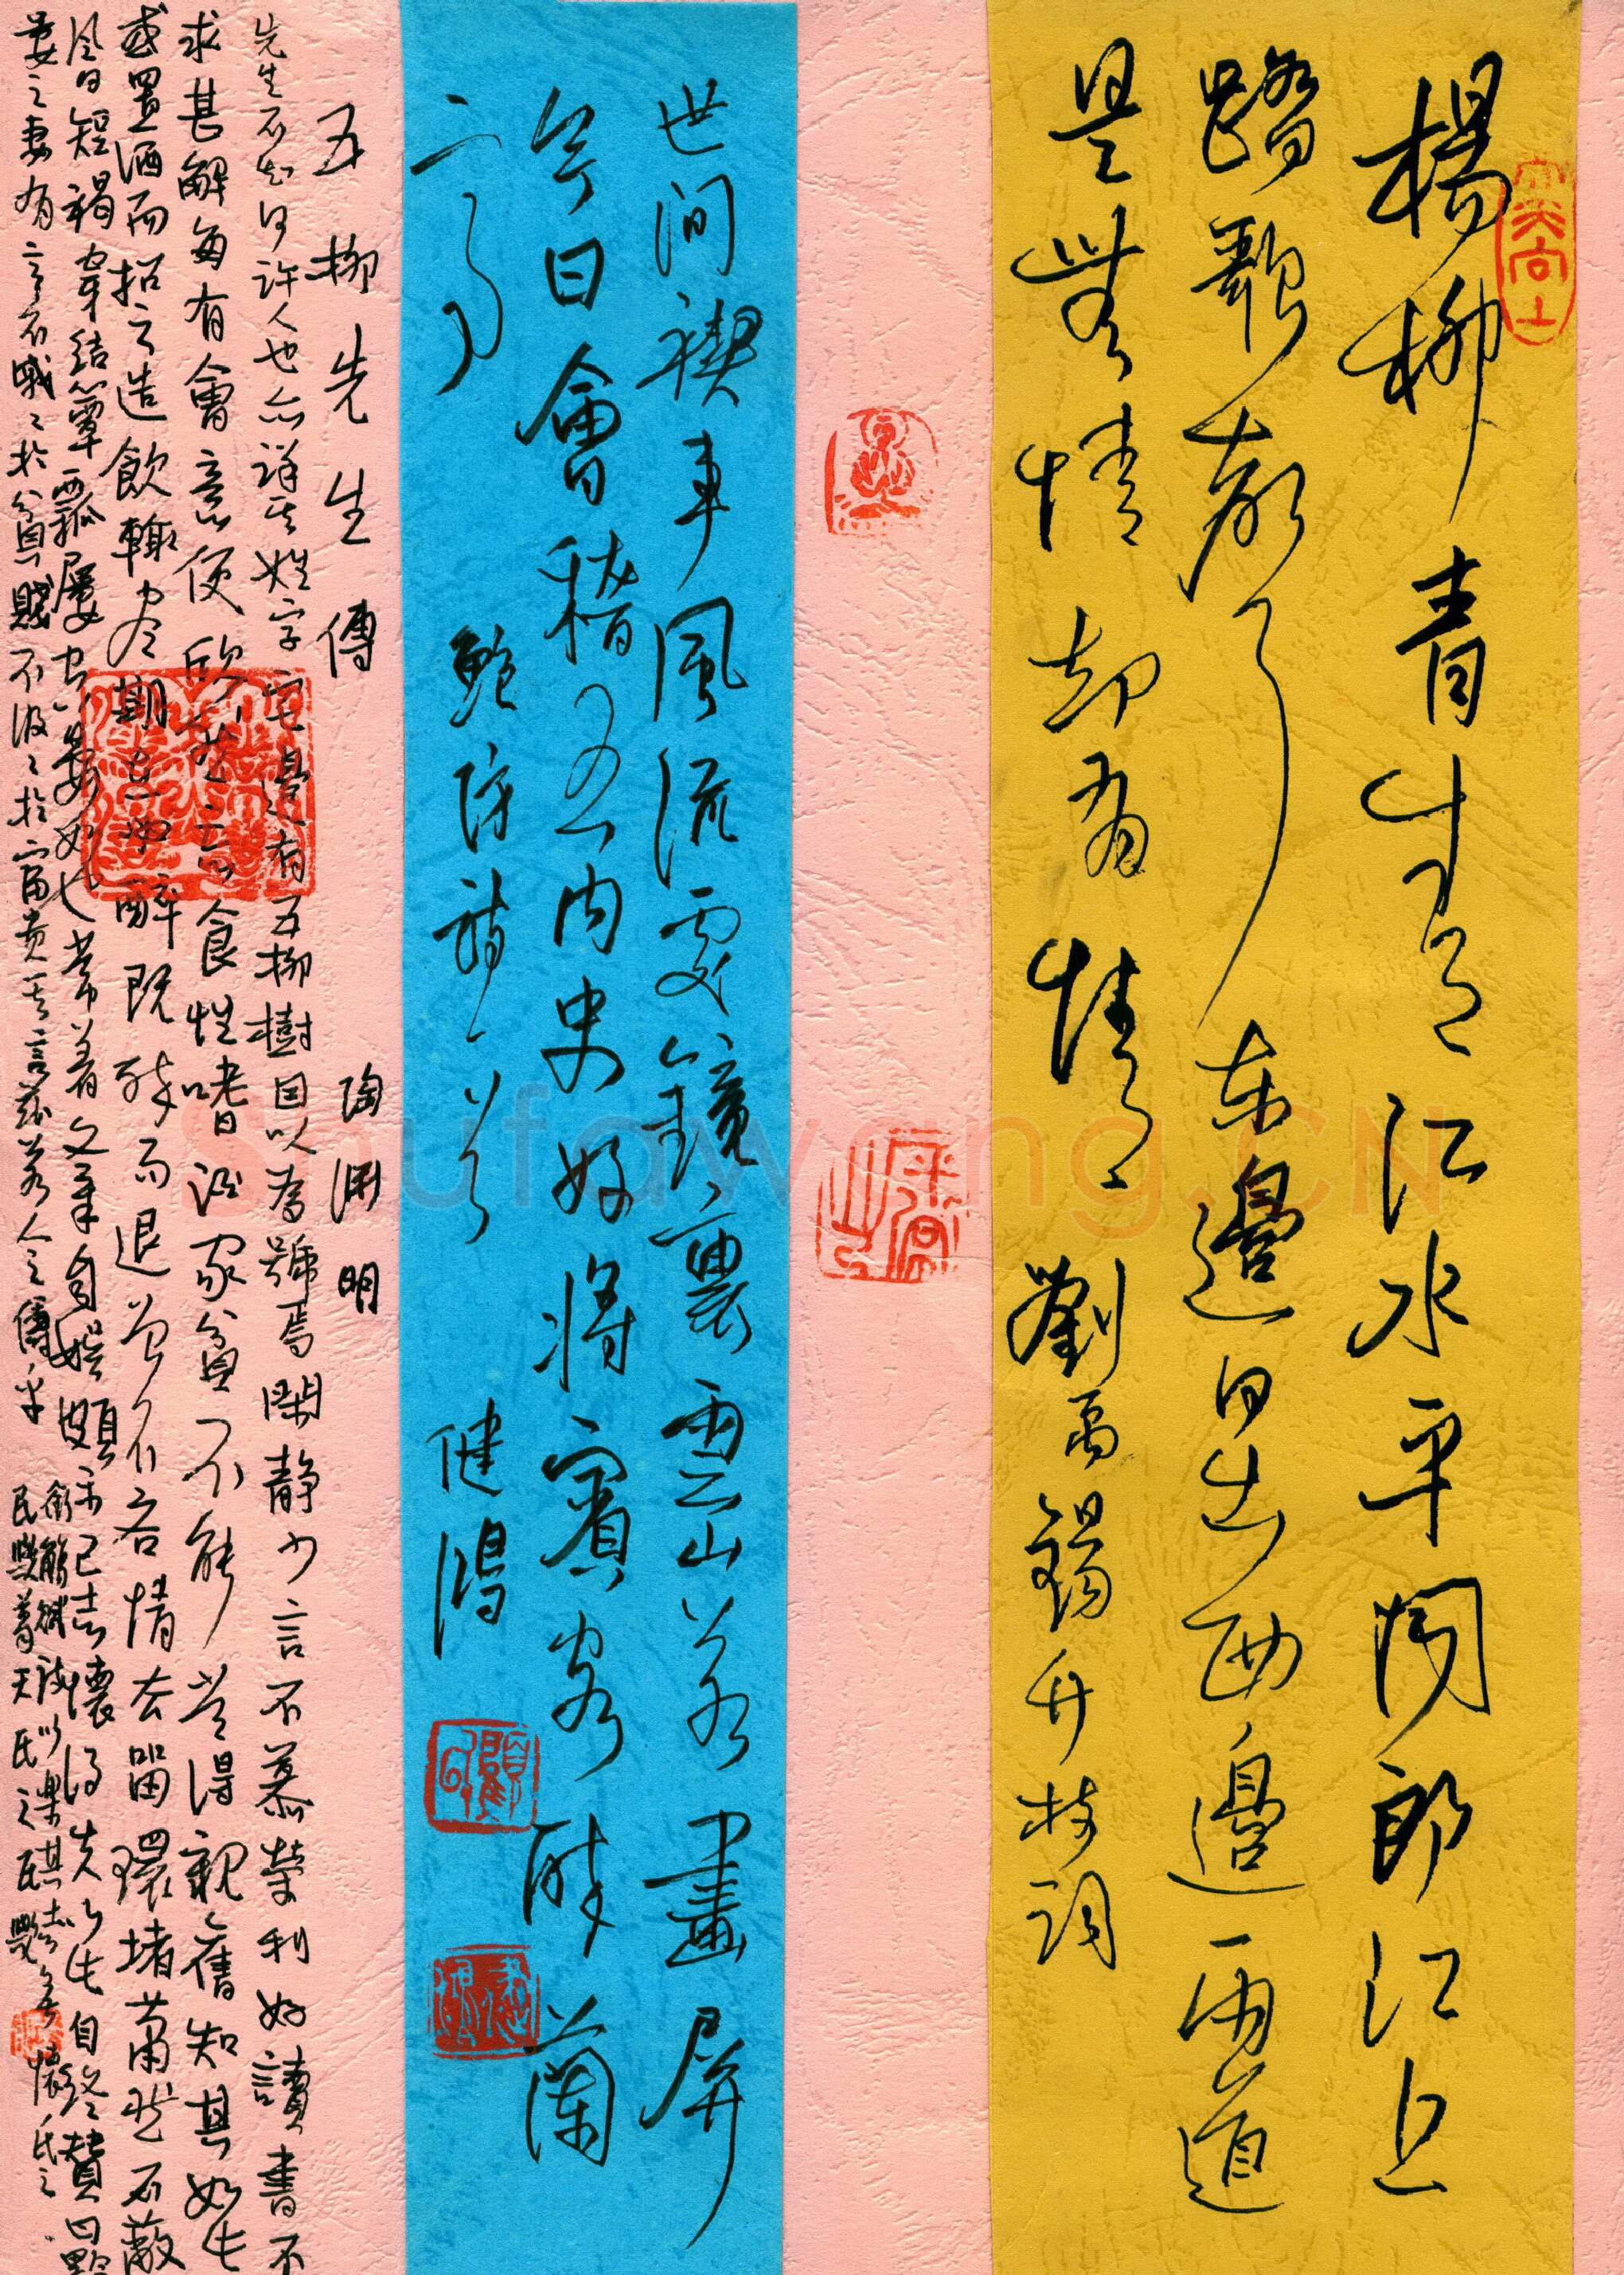 楊柳青青江水平聞郎江上
踏歌聲東邊日出西邊雨道
是無情却有情
劉禹錫竹枝詞
世間禊事風流處鏡裏雲山若畫屏
今日會稽王內史好將賓客醉蘭
亭
鮑防詩一首
健鴻
五柳先生傳 陶淵明
先生不知何許人也亦不詳其姓字宅邊有五柳樹因以為號焉閑靜少言不慕榮利好讀書不
求甚解每有會意便欣然忘食性嗜酒家貧不能常得親舊知其如此
或置酒而招之造飲輒盡期在必醉既醉而退曾不吝情去留環堵蕭然不蔽
風日短褐穿結簞瓢屢空晏如也常著文章自娛頗示己志懷得失以此自終贊曰黔
婁之妻有言不戚戚於貧賤不汲汲於富貴其言茲若人之儔乎
銜觴賦詩以樂其志無懷氏之
民歟葛天氏之民歟
Shufaweng.CN